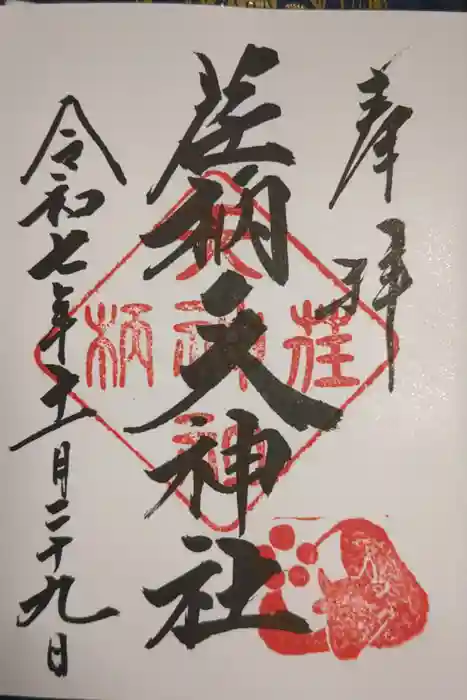 奉拝
荏柄天神社
令和七年十一月二十九日
荏
天神社
神
柄